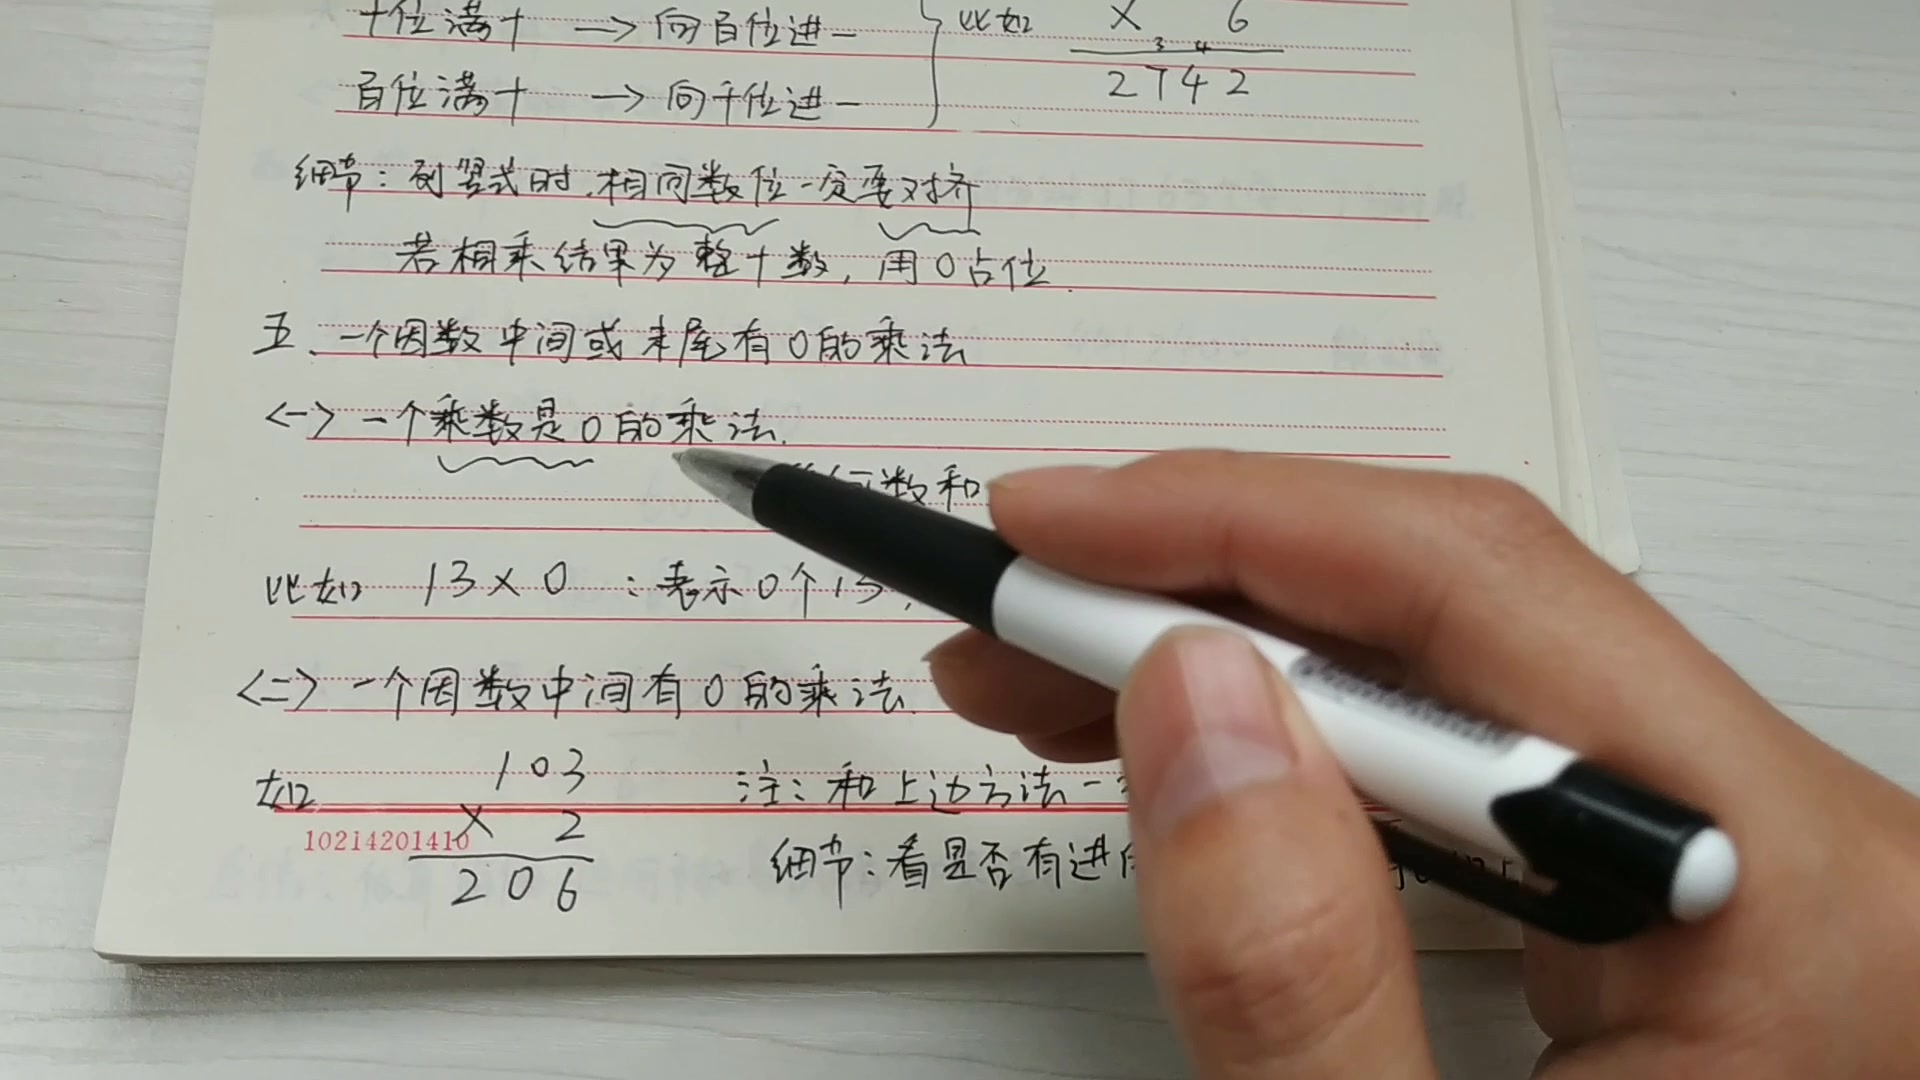 十位满十 → 向百位进一
百位满十 → 向千位进一
比如
× 6
3 4
2742
细节：列竖式时,相同数位一定要对齐
若相乘结果为整十数,用0占位.
五、一个因数中间或末尾有0的乘法
<一> 一个乘数是0的乘法.
数和
比如 13×0 ：表示0个13,
<二> 一个因数中间有0的乘法.
如 103
× 2
206
注：和上边方法一
细节：看是否有进
10214201410